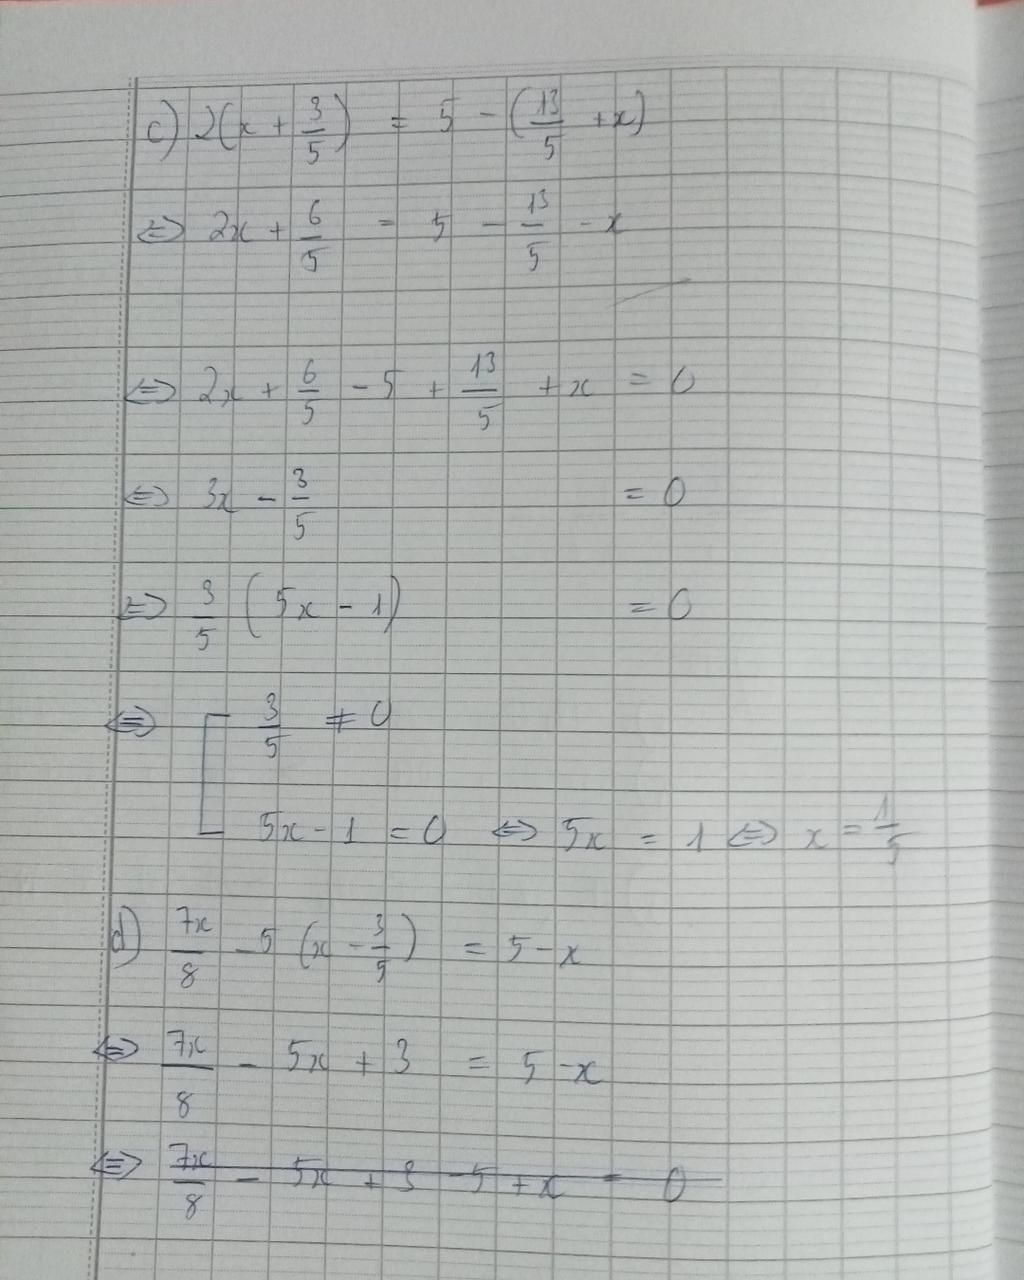 c) 2(x + 3/5) = 5 - (13/5 + x)
⇔ 2x + 6/5 = 5 - 13/5 - x
⇔ 2x + 6/5 - 5 + 13/5 + x = 0
⇔ 3x - 3/5 = 0
⇔ 3/5 (5x - 1) = 0
⇔ [ 3/5 ≠ 0
5x - 1 = 0 ⇔ 5x = 1 ⇔ x = 1/5
d) 7x/8 - 5 (x - 3/5) = 5 - x
⇔ 7x/8 - 5x + 3 = 5 - x
⇔ 7x/8 - 5x + 3 - 5 + x = 0